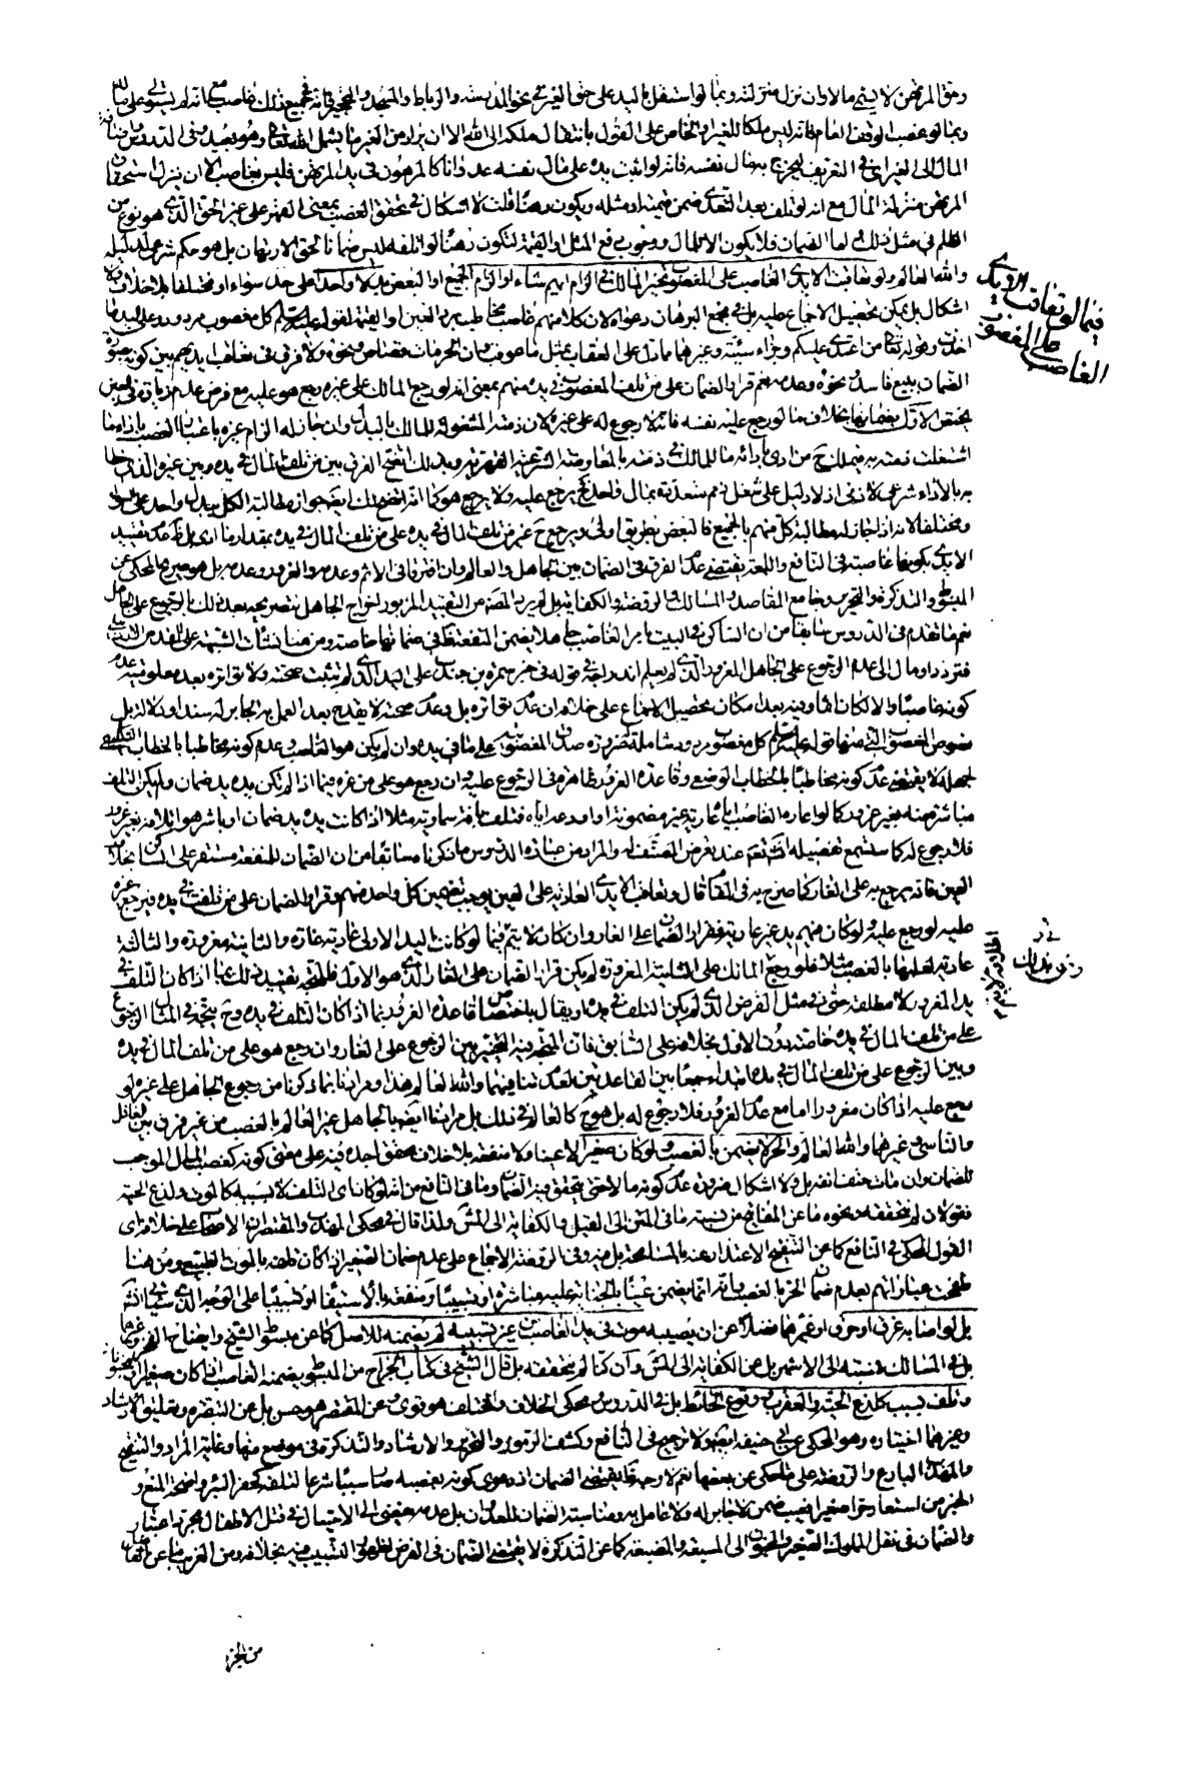 وحق المرتهن لا يسمى مالا وان نزل منزلته وبما لو استقل باليد على حق الغير في نحو المدرسة والرباط والمسجد والتحجير فانه في جميع ذلك غاصب مع انه لم يستول على مال
وبما لو غصب الوقف العام فانه ليس ملكا للغير والخاص على القول بانتقال ملكه الى الله الا ان يراد من الغير ما يشمل الله تعالى وهو بعيد وفي الدروس
المال الى الغير في التعريف ليخرج به مال نفسه فانه لو اثبت يده على مال نفسه عدوانا كالمرهون في يد المرتهن فليس بغاصب الا ان ينزل استحقاق
المرتهن منزلة المال مع انه لو تلف بعد التعدي ضمن قيمته او مثله ويكون رهنا قلت لا اشكال في تحقق الغصب بمعنى القهر على غير الحق الذي هو نوع من
الظلم في مثل ذلك اما الضمان فلا يكون الا للمال ووجوب دفع المثل او القيمة لتكون رهنا لو اتلفه ليس ضمانا لحق الارتهان بل هو حكم شرعي لدليله
والله العالم ولو تعاقبت الايدي الغاصبة على المغصوب تخير المالك في الزام ايهم شاء او الزام الجميع او البعض بدلا واحدا على حد سواء او مختلفا بلا خلاف ولا
فيما لو تعاقبت الايدي
الغاصبة على المغصوب
اشكال بل يمكن تحصيل الاجماع عليه بل في مجمع البرهان دعواه لان كلا منهم غاصب مخاطب برد العين او القيمة لقوله عليه السلم كل مغصوب مردود وعلى اليد ما
اخذت وقوله تعالى من اعتدى عليكم وجزاء سيئة وغيرهما مما دل على العقاب بمثل ما عوقب وان الحرمات قصاص ونحوه ولا فرق في تعاقب ايديهم بين كونه بصورة
الضمان ببيع فاسد ونحوه وعدمه نعم قرار الضمان على من تلف المغصوب في يده منهم بمعنى انه لو رجع المالك على غيره رجع هو عليه مع فرض عدم زيادة في العين
يختص الاول بضمانها بخلاف ما لو رجع عليه نفسه فانه لا رجوع له على غيره لان ذمته المشغولة للمالك بالبدل وان جاز له الزام غيره باعتبار الغصب باداء ما
اشتغلت ذمته به فيملك ح من ادى بادائه ما للمالك في ذمته بالمعاوضة الشرعية القهرية وبذلك اتضح الفرق بين من تلف المال في يده وبين غيره الذي خطابه
به بالاداء شرعي لا ذمي اذ لا دليل على شغل ذمم متعددة بمال واحد فح يرجع عليه ولا يرجع هو كما انه اتضح لك ايضا جواز مطالبة الكل ببدل واحد على السواء
ومختلفا لانه اذا جاز له مطالبة كل منهم بالجميع فالبعض بطريق اولى ويرجع ح غير من تلف المال في يده على من تلف المال في يده بمقدار ما ادى
الايدي بكونها غاصبة في النافع واللمعة يقتضي عدم الفرق في الضمان بين الجاهل والعالم وان افترقا في الاثم وعدمه والغرور وعدمه بل هو صريح المحكي عن
المبسوط والتذكرة والتحرير وجامع المقاصد والمسالك والروضة والكفاية بل لم يرد المصنف من التقييد المزبور اخراج الجاهل لتصريحه بعد ذلك بالرجوع على الجاهل
نعم ما تقدم في الدروس سابقا من ان الساكن في البيت بامر الغاصب جاهلا يضمن المنفعة
فتردد او مال الى عدم الرجوع على الجاهل المغرور الذي لم يعلم اندراجه في قوله
كونه غاصبا والا لكان آثما وفيه بعد امكان تحصيل الاجماع على خلافه ان عدم تواتره بل وعدم صحته لا يقدح بعد العمل به الجابر له سندا ودلالة بل
نصوص الغصب التي منها قوله عليه السلم كل مغصوب مردود شاملة ضرورة صدق المغصوب على ما في يده وان لم يكن هو الغاصب وعدم كونه مخاطبا بالخطاب التكليفي
لجهله لا يقتضي عدم كونه مخاطبا بالخطاب الوضعي وقاعدة الغرور ظاهرة في الرجوع عليه وان رجع هو على من غره فيما اذا لم تكن يده يد ضمان ولم يكن التلف
مباشرة منه بغير غرور كما لو اعاره الغاصب اياه عارية غير مضمونة او اودعه اياه فتلف بافة سماوية مثلا اما اذا كانت يده يد ضمان او باشر هو اتلافه بغير غرور
فلا رجوع له كما ستسمع تفصيله انش تعم عند تعرض المصنف له والمراد من عبارة الدروس ما ذكرنا سابقا من ان الضمان للمنفعة مستقر على الساكن بخلاف
العين فانه يرجع به على الغار كما صرح به في القواعد قال وتعاقب الايدي العادية على العين يوجب تضمين كل واحد منهم وقرار الضمان على من تلفت في يده فيرجع غيره
عليه لو رجع عليه ولو كان منهم يد غير عادية فقرار الضمان على الغار وان كان لا يتم فيما لو كانت اليد الاولى عادية غارة والثانية مغرورة والثالثة
عادية لعلمها بالغصب مثلا فلو رجع المالك على الثانية المغرورة لم يكن قرار الضمان على الغار الذي هو الاول فالمتجه تقييد ذلك بما اذا كان التلف في
يد المغرور لا مطلقا حتى في مثل الفرض الذي لم يكن التلف في يده او يقال باختصاص قاعدة الغرور بما اذا كان التلف في يده وح يتجه في المثال الرجوع
على من تلف المال في يده خاصة دون الاول بخلافه على السابق فان المتجه فيه التخيير بين الرجوع على الغار وان رجع هو على من تلف المال في يده
وبين الرجوع على من تلف المال في يده ابتداء جمعا بين القاعدتين لعدم تنافيهما والله العالم هذا ومرادنا بما ذكرنا من رجوع الجاهل على غيره لو
رجع عليه اذا كان مغرورا اما مع عدم الغرور فلا رجوع له بل هو ح كالعالم في ذلك بل مرادنا ايضا بالجاهل غير العالم بالغصب من غير فرق بين الغافل
والناسي وغيرهما والله العالم والحر لا يضمن بالغصب ولو كان صغيرا لا عينا ولا منفعة بلا خلاف محقق اجده فيه على معنى كونه كغصب المال الموجب
للضمان وان مات حتف انفه بل ولا اشكال ضرورة عدم كونه مالا حتى يتحقق فيه الضمان وما في النافع من انه لو كان اي التلف لا بسببه كالموت ولدغ الحية
فقولان لم نتحققه ونحوه ما عن المفاتيح من نسبة ما في المتن الى القيل والكفاية الى المش ولذا قال في محكي المهذب والمقتصر ان الاصحاب على خلافه اي
القول المحكي في النافع كما عن التنقيح الاعتذار عنه بالمسامحة بل منه وفي الروضة الاجماع على عدم ضمان الصغير اذا كان تلفه بالموت الطبيعي ومن هنا
طفحت عباراتهم بعدم ضمان الحر بالغصب وانه انما يضمن عينا بالجناية عليه مباشرة او تسبيبا ومنفعة بالاستيفاء او تسبيبا على الوجه الذي سيأتي انش
بل لو اصابه غرق او حرق او غيرهما فضلا عن ان يصيبه موت في يد الغاصب من غير تسبيبه لم يضمنه للاصل كما عن مبسوط الشيخ وايضاح الفخر وغيرهما
بل في المسالك نسبته الى الاشهر بل عن الكفاية الى المش وان كنا لم نتحققه بل قال الشيخ في كتاب الجراح من المبسوط يضمنه الغاصب اذا كان صغيرا او مجنونا
وتلف بسبب كلدغ الحية والعقرب ووقوع الحائط بل في الدروس ومحكي الخلاف والمختلف هو قوي وعن المقتصر هو حسن بل عن التبصرة وتعليق الارشاد
وغيرهما اختياره وهو المحكي عن ابي حنيفة ايضا ولا ترجيح في النافع وكشف الرموز والتحرير والارشاد والتذكرة في موضع منها وغاية المراد والتنقيح
والمهذب البارع والروضة على ما حكي عن بعضها نعم لا وجه لما يقتضي الضمان اذ دعوى كونه بغصبه صار سببا شرعا لتلفه كحفر البئر واضحة المنع و
الخبر من استعار حرا صغيرا فعيب ضمن لا جابر له ولا عامل به ومناسبة الضمان للعدوان بل عدمه مفض الى الاحتيال في قتل الاطفال مجرد اعتبار
والضمان في نقل المملوك الصغير والمجنون الى المسبعة والمضيعة كما عن التذكرة لا يقتضي الضمان في الفرض لظهور التسبيب فيه بخلافه ومن الغريب
من الحر